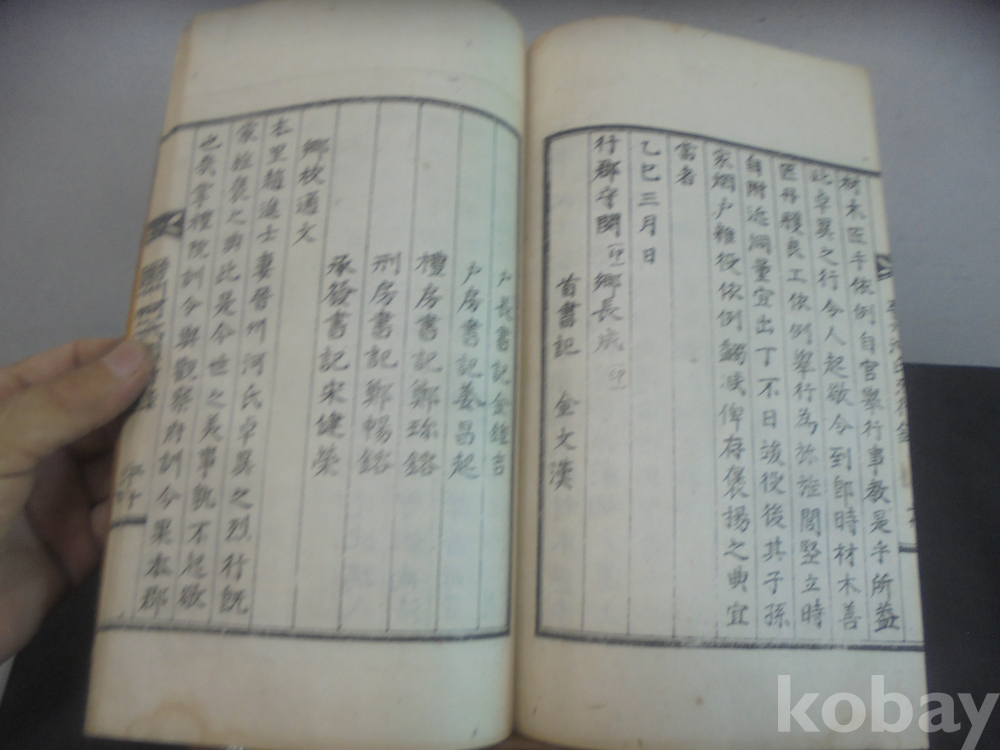 材木匠手依例自官擧行事敎是乎所益
此卓異之行令人起欽令到卽時材木善
匠各種良工依例擧行爲旀旌閭竪立時
自附近洞量宜出丁不日竣役後其子孫
家烟戶雜役依例蠲减俾存褒揚之典宜
當者
乙巳三月日
行郡守閔 印 鄕長 印
首書記 金文漢
戶長書記金鍾吉
戶房書記姜昌起
禮房書記鄭珎鎔
刑房書記鄭暢鎔
承發書記宋健榮
鄕校通文
右里趙進士妻晉州河氏卓異之烈行旣
蒙旌褒之典此是今世之美事孰不起欽
也哉掌禮院訓令與觀察府訓令果本郡
kobay